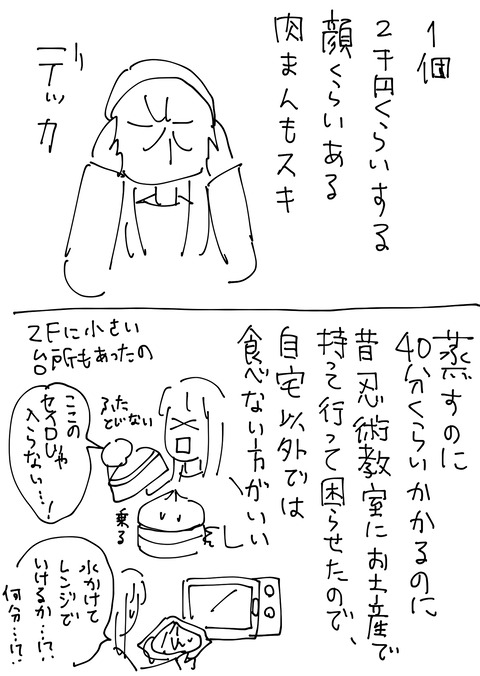 1個
2千円くらいする
顔くらいある
肉まんもスキ
デッカ
蒸すのに
40分くらいかかるのに
昔忍術教室にお土産で
持って行って困らせたので、
自宅以外では
食べない方がいい
2Fに小さい
台所もあったの
ふた
とじない
ここの
セイロじゃ
入らない…!
乗る
しい
水かけて
レンジで
いけるか…!?
何分…!?